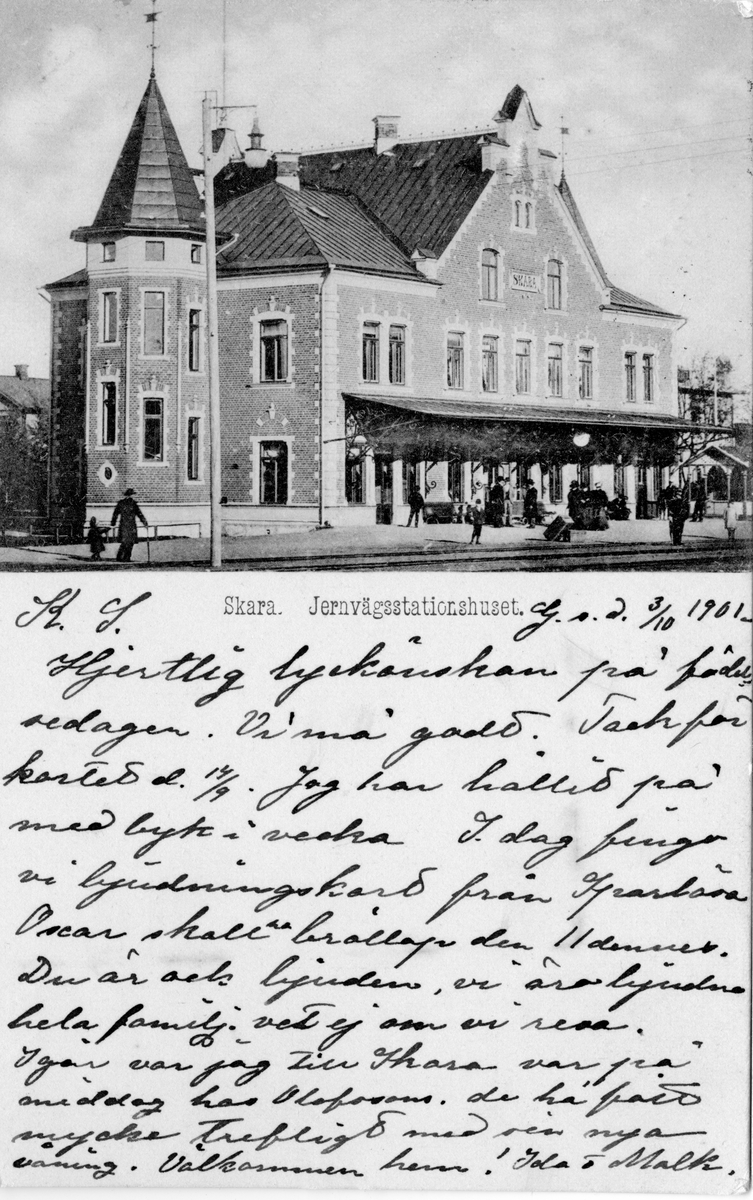 SKARA
Skara. Jernvägsstationshuset.
K. S. G. s. d. 3/10 1901
Hjertlig lyckönskan på födel-
sedagen. Vi må godt. Tack för
kortet d. 14/9. Jag har hållit på
med byk i vecka I dag fingo
vi bjudningskort från
Oscar skall ha bröllop den 11 dennes.
Du är ock bjuden, vi äro bjudne
hela familj. vet ej om vi resa.
Igår var jag till Skara var på
middag hos Olofssons. de ha fått
mycke trefligt med sin nya
våning. Välkommen hem! Ida o Malk.